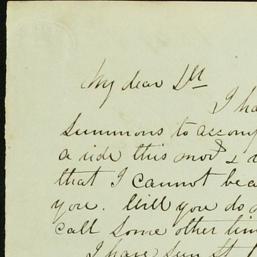 My dear Dr
I ha
summons to accomp
a ride this morg & 
that I cannot be a
you. Will you do
call some other tim
I have seen